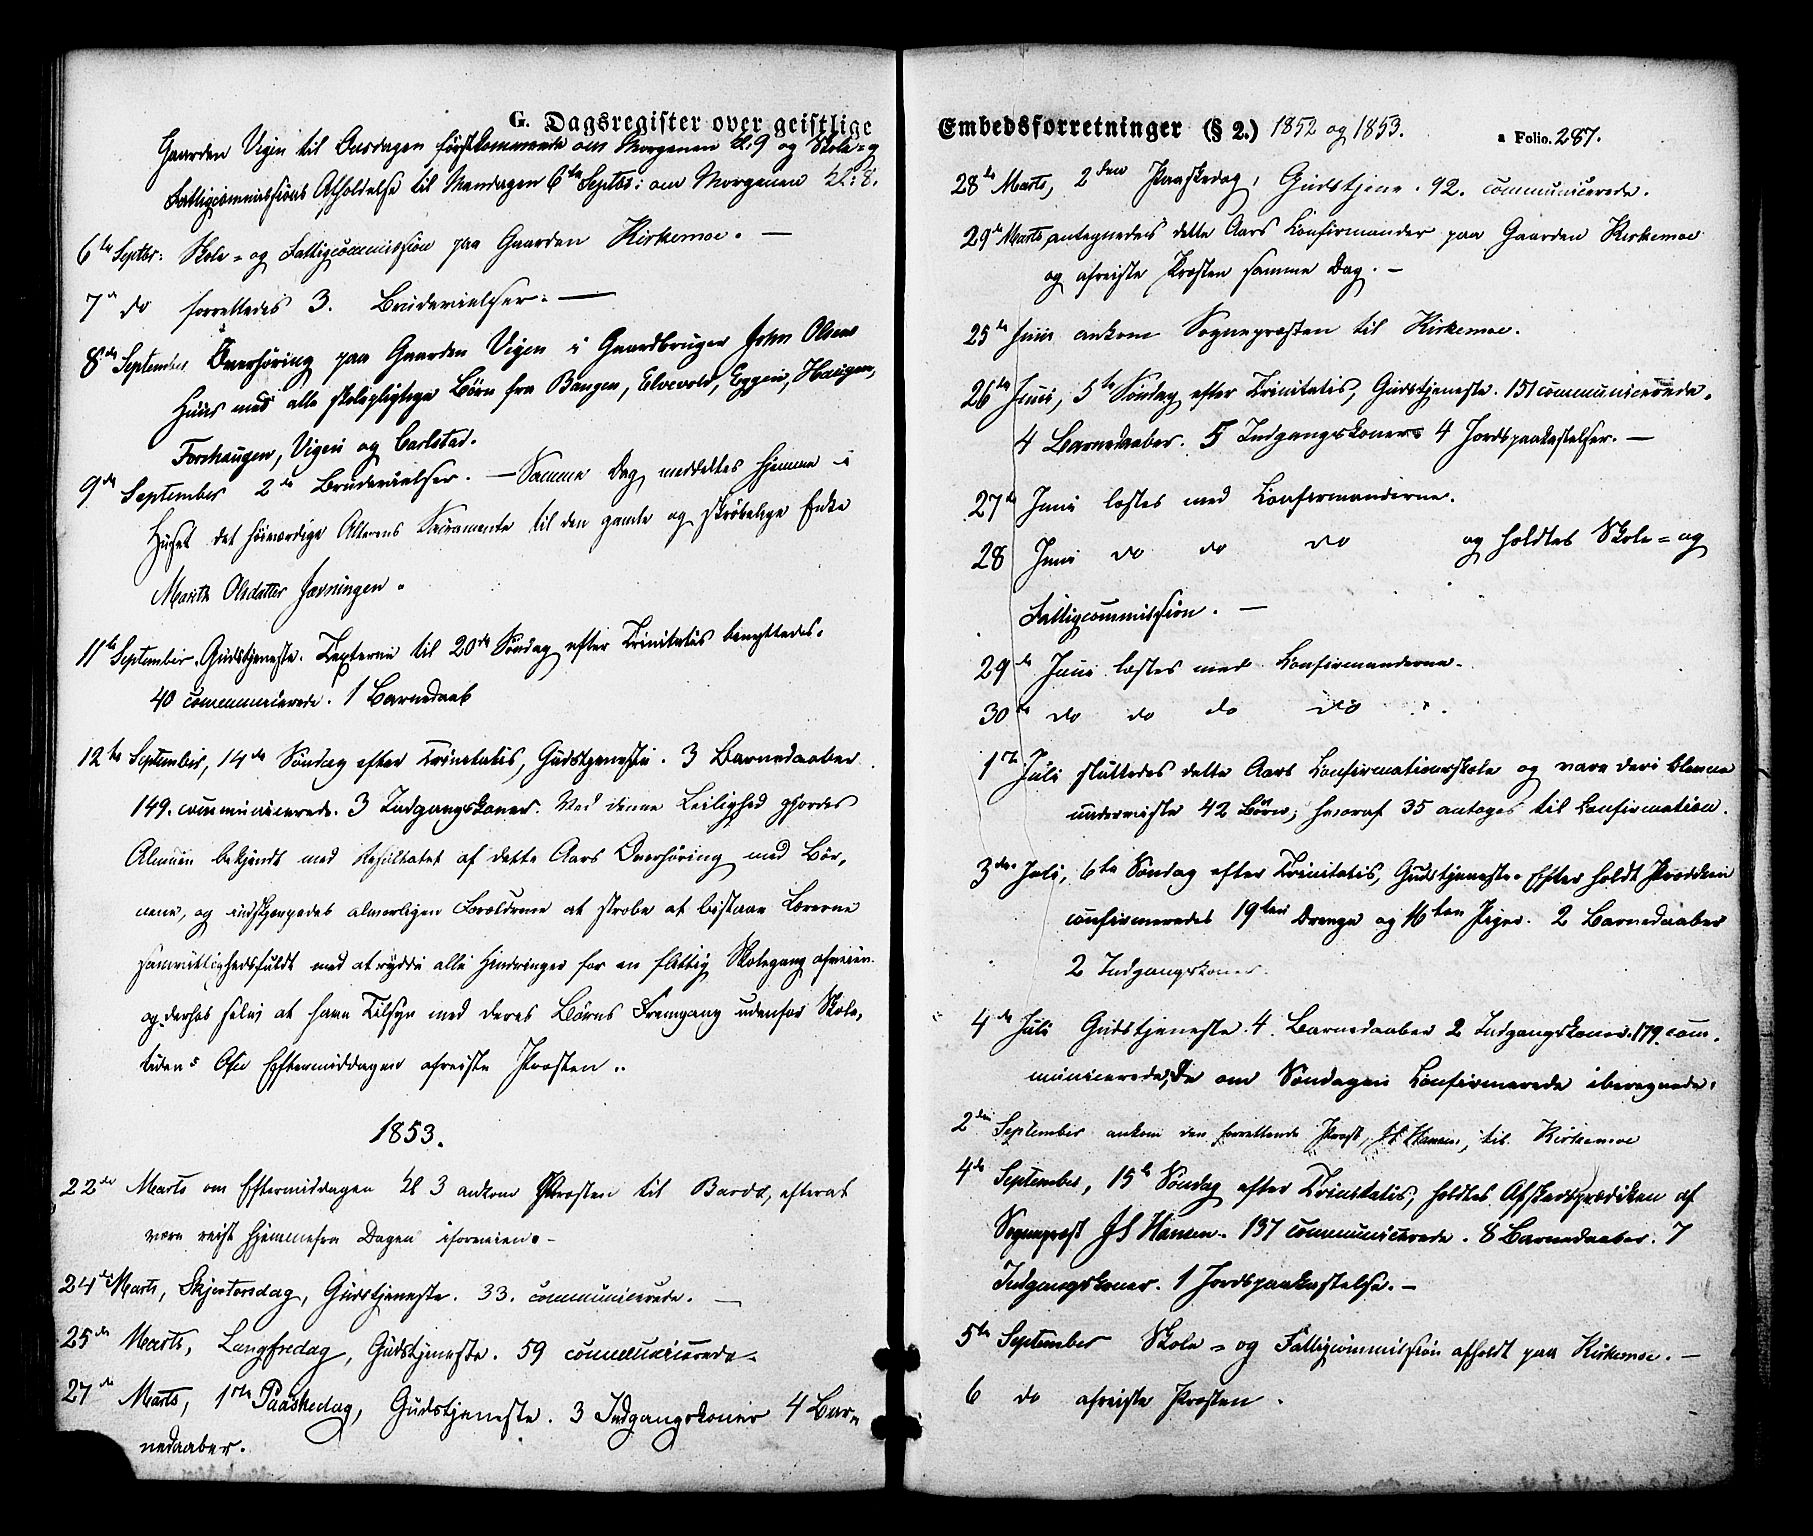 G. Dagsregister over geistlige
Gaarden Vigen til Onsdagen førstkommende om Morgenen Kl. 9 og Skole- og
Fattigcommissions Afholdelse til Mandagen 6te Septbr: om Morgenen Kl: 8.
6te Septbr: Skole- og Fattigcommission paa Gaarden Kirkemoe. —
7de do forrettedes 3. Brudevielser. —
8de September Overhøring paa Gaarden Vigen i Gaardbruger John Olsens
Huus med alle skolepligtige Børn fra Bangen, Elvevold, Eggen, Haugen,
Forshaugen, Vigen og Carlstad.
9de September 2de Brudevielser. — Samme Dag meddeltes hjemme i
Huset det høiværdige Alterens Sacramente til den gamle og skrøbelige Enke
Marith Olsdatter
11te September. Gudstjeneste. Texterne til 20de Søndag efter Trinitatis benyttedes.
40 communicerede. 1 Barnedaab
12te September, 14de Søndag efter Trinitatis, Gudstjeneste. 3 Barnedaaber.
149. communicerede. 3 Indgangskoner. Ved denne Leilighed gjordes
Almuen bekjendt med Resultatet af dette Aars Overhøring med Bør-
nene, og indskjærpedes alvorligen Forældrene at stræbe at bistaae Lærerne
samvittighedsfuldt med at rydde alle Hindringer for en flittig Skolegang afveien
og derhos selv at have Tilsyn med deres Børns Fremgang udenfor Skole-
tiden. Om Eftermiddagen afreiste Præsten..
1853.
22de Marts om Eftermiddagen Kl 3 ankom Præsten til Bardo, efterat
være reist hjemmefra Dagen iforveien. -
24de Marts, Skjertorsdag, Gudstjeneste. 33. communicerede. —
25de Marts, Langfredag, Gudstjeneste. 59 communicerede.
27de Marts, 1ste Paaskedag, Gudstjeneste. 3 Indgangskoner 4 Bar-
nedaaber.
Embedsforretninger (§ 2.) 1852 og 1853. a Folio. 287.
28de Marts, 2den Paaskedag, Gudstjene. 92. communicerede.
29de Marts, antegnedes dette Aars Confirmander paa Gaarden Kirkemoe
og afreiste Præsten samme Dag. -
25de Juni ankom Sognepræsten til Kirkemoe.
26de Juni, 5te Søndag efter Trinitatis, Gudstjeneste. 151 communicerede.
4 Barnedaaber. 5 Indgangskoner 4 Jordspaakastelser. —
27de Juni læstes med Confirmanderne.
28 Juni do do do og holdtes Skole- og
Fattigcommission. —
29de Juni læstes med Confirmanderne.
30te do do do do .
1ste Juli sluttedes dette Aars Confirmationsskole og vare deri blevne
underviste 42 Børn; hvoraf 35 antoges til Confirmation.
3die Juli, 6te Søndag efter Trinitatis, Gudstjeneste. Efter holdt Prædiken
confirmeredes 19ten Drenge og 16ten Piger. 2 Barnedaaber
2 Indgangskoner.
4de Juli Gudstjeneste. 4. Barnedaaber 2 Indgangskoner. 179. com-
municerede, de om Søndagen Confirmerede iberegnede.
2den September ankom den forrettende Præst, JS Hansen, til Kirkemoe
4de September, 15de Søndag efter Trinitatis, holdtes Afskedsprædiken af
Sognepræst JS Hansen. 137 communicerede. 8 Barnedaaber. 7
Indgangskoner. 1 Jordspaakastelse. —
5te September Skole- og Fattigcommission afholdt paa Kirkemoe. —
6 do afreiste Præsten.